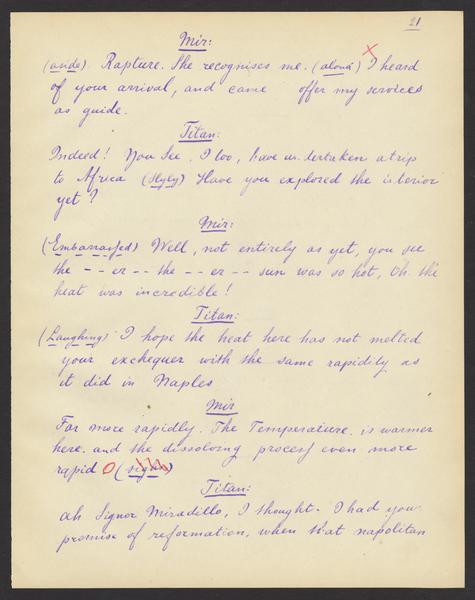 21
Mir:
(aside) Rapture. She recognises me. (aloud) X I heard
of your arrival, and came offer my services
as guide.
Titan:
Indeed! You See, I too, have undertaken a trip
to Africa (slyly) Have you explored the interior
yet?
Mir:
(Embarrassed) Well, not entirely as yet, you see
the -- er -- the -- er -- sun was so hot, Oh the
heat was incredible!
Titan:
(Laughing) I hope the heat here has not melted
your exchequer with the same rapidity as
it did in Naples
Mir
Far more rapidly. The Temperature is warmer
here. and the dissolving process even more
rapid O (sighs)
Titan:
Ah Signor Miradillo, I thought. I had your
promise of reformation, when that napolitan